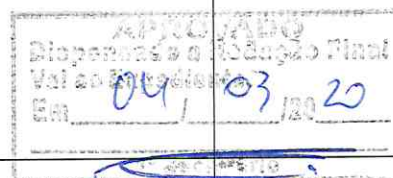 APROVADO
Dispensada a Redação Final
Vai ao Expediente
Em 04 / 03 /20 20
Secretário